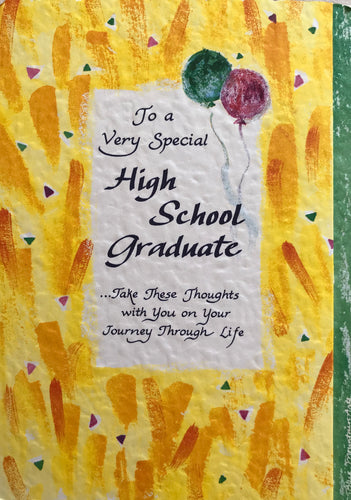 To a
Very Special
High
School
Graduate
...Take These Thoughts
with You on Your
Journey Through Life